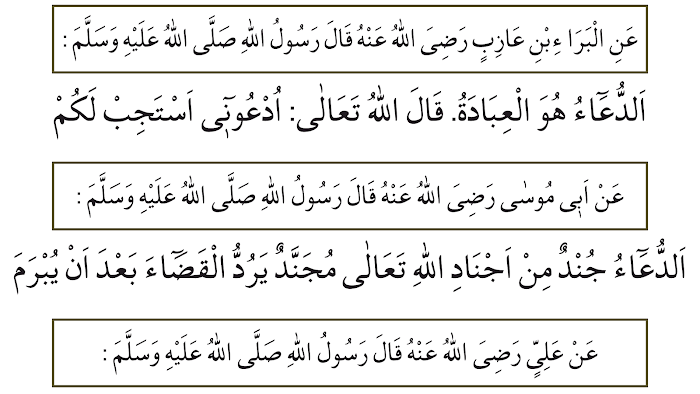 عَنِ الْبَرَا ءِبْنِ عَازِبٍ رَضِىَ اللهُ عَنْهُ قَالَ رَسُولُ اللهِ صَلَّى اللهُ عَلَيْهِ وَسَلَّمَ :
اَلدُّعَٓاءُ هُوَ الْعِبَادَةُ. قَالَ اللهُ تَعَالٰى: اُدْعُونٖٓى اَسْتَجِبْ لَكُمْ
عَنْ اَبٖى مُوسٰى رَضِىَ اللهُ عَنْهُ قَالَ رَسُولُ اللهِ صَلَّى اللهُ عَلَيْهِ وَسَلَّمَ :
اَلدُّعَٓاءُ جُنْدٌ مِنْ اَجْنَادِ اللهِ تَعَالٰى مُجَنَّدٌ يَرُدُّ الْقَضَٓاءَ بَعْدَ اَنْ يُبْرَمَ
عَنْ عَلِىٍّ رَضِىَ اللهُ عَنْهُ قَالَ رَسُولُ اللهِ صَلَّى اللهُ عَلَيْهِ وَسَلَّمَ :